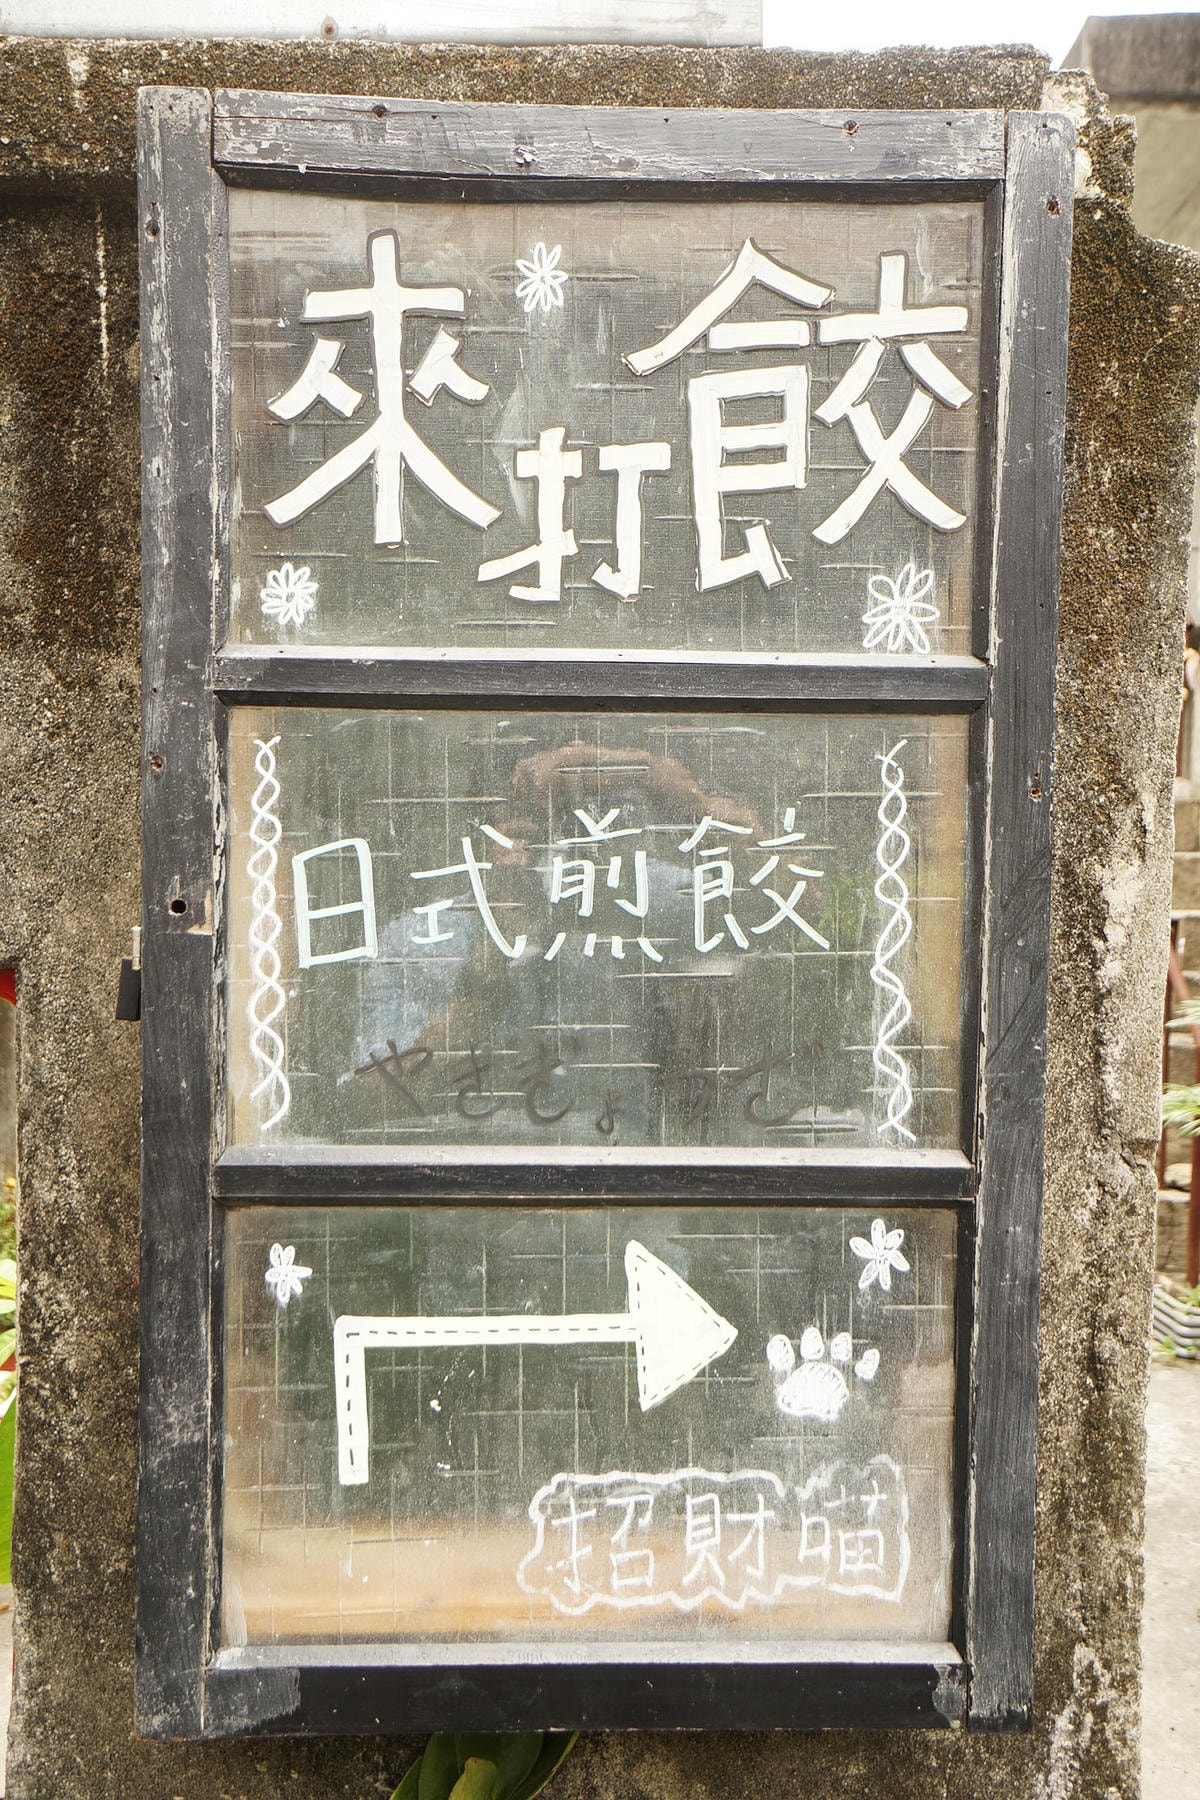 來打餃
日式煎餃
やきぎょうざ
招財喵